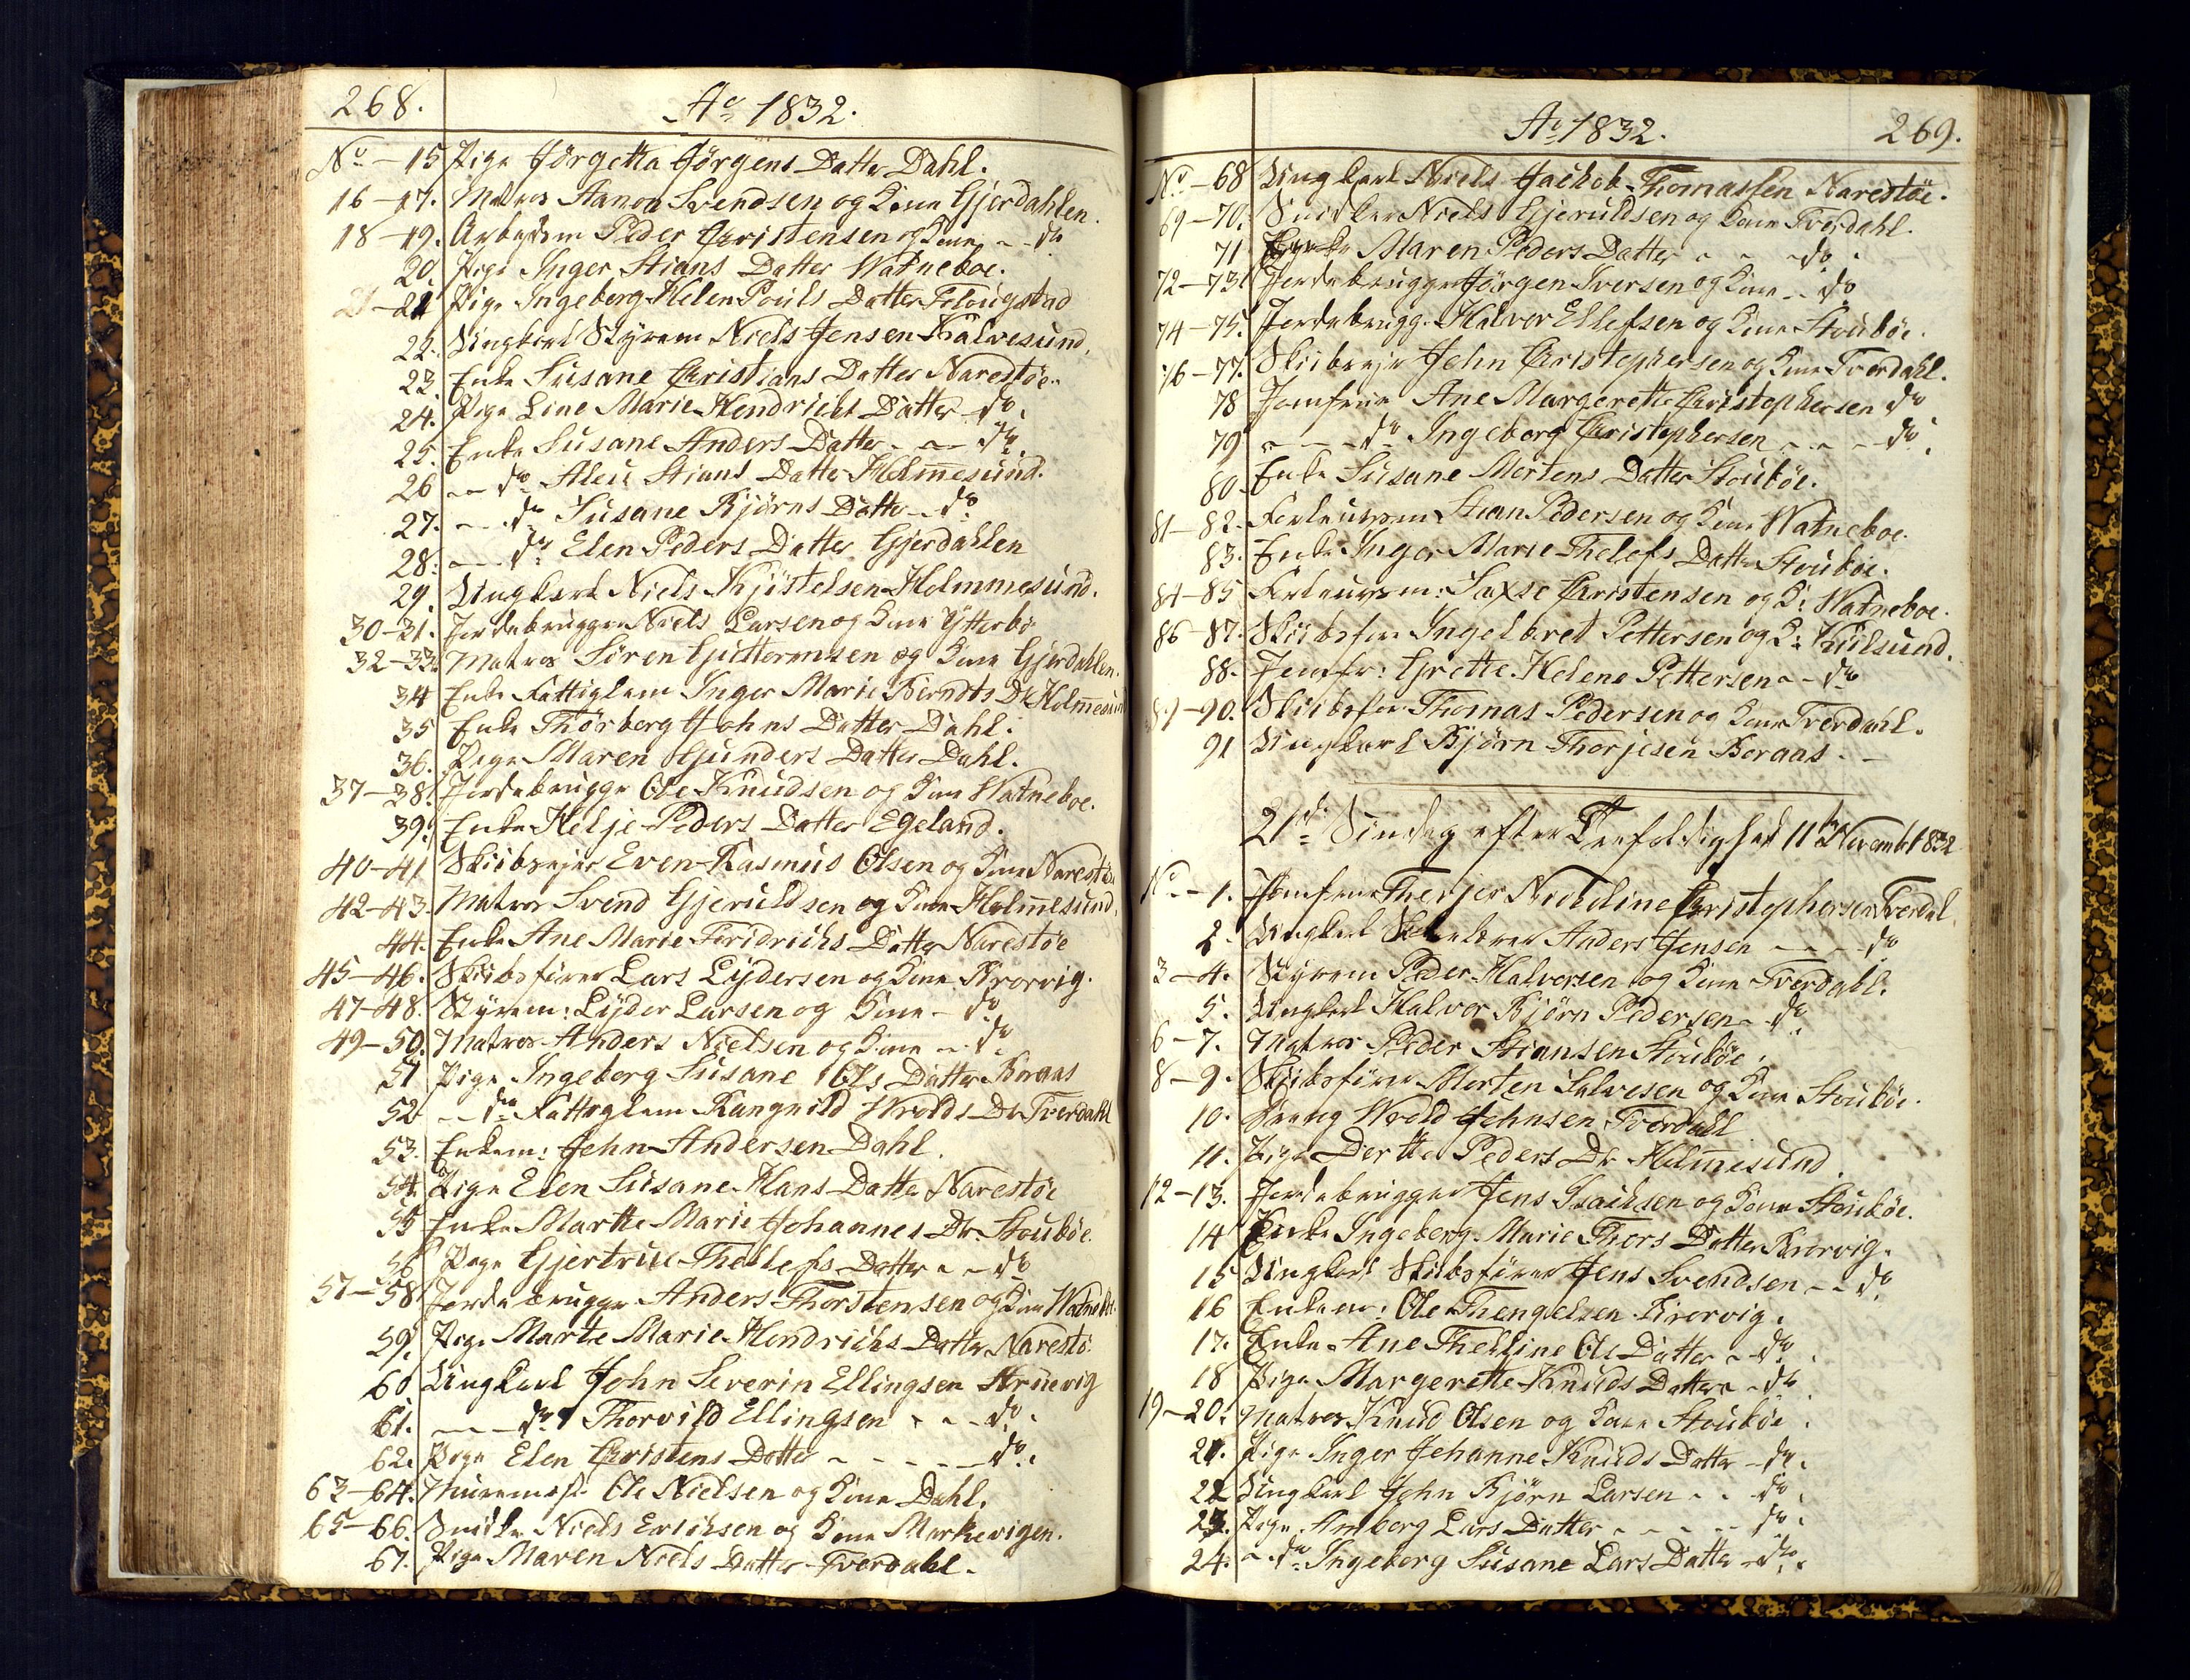 268.
Ao 1832.
No - 15 Pige Jörgette Jörgens Datter Dahl.
16-17. Matros Aanon Svendsen og Kone Gjerdahlen.
18-19. Arbeidsm Peder Christensen og Kone - - do
20. Pige Inger Stians Datter Watneboe.
21-22 Pige Ingeborg Helen Pouls Datter Flougstad
22. Ungkarl Styrem Niels Jensen Kalvesund.
23. Enke Susane Christians Datter Narestöe.
24. Pige Line Marie Hendrichs Datter - do.
25. Enke Susane Anders Datter - - - do.
26 - - do Aleu Stians Datter Holmesund.
27. - - do Susane Björns Datter - do
28. - - do Elen Peders Datter Gjerdahlen
29. Ungkarl Niels Kjöstelsen Holmmesund.
30-31. Jordebrugger Niels Larsen og Kone Ytterbö
32-33. Matros Sören Guttormsen og Kone Gjerdahlen.
34 Enke Fattiglem Inger Marie Berndts Dr Holmesund
35 Enke Thorborg Johns Datter Dahl.
36. Pige Maren Gunders Datter Dahl.
37-38. Jordebrugger Ole Knudsen og Kone Watneboe.
39. Enke Helje Peders Datter Egeland.
40-41 Skibsejer Even Rasmus Olsen og Kone Narestö
42-43. Matros Svend Gjeruldsen og Kone Holmesund.
44. Enke Ane Marie Feridrichs Datter Narestöe
45-46. Skibsförer Lars Lydersen og Kone Krorvig.
47-48. Styrem: Lyder Larsen og Kone - do
49-50. Matros Anders Nielsen og Kone - - do
51 Pige Ingeborg Susane Ols Datter Boraas
52 - - do Fattiglem Rangnild Wrolds Dr Tverdahl
53. Enkem: John Andersen Dahl.
54. Pige Elen Susane Hans Datter Narestöe
55 Enke Marthe Marie Johannes Dr. Stouböe.
56 Pige Gjertrue Thellefs Datter - - do
57-58 Jordebrugger Anders Thorstensen og Kone Watneboe
59. Pige Marte Marie Hendrichs Datter Narestö
60. Ungkarl John Severin Ellingsen Struevig
61. - - - do Thorvild Ellingsen - - - do.
62. Pige Elen Christens Datter - - - - - do.
63-64. Muremest Ole Nielsen og Kone Dahl.
65-66. Snidker Niels Erichsen og Kone Markevigen.
67. Pige Maren Niels Datter Tverdahl.
Ao 1832.
269.
No - 68 Ungkarl Niels Jackob Thomassen Narestöe.
69-70. Snidker Niels Gjeruldsen og Kone Tverdahl.
71 Enke Maren Peders Datter - - - do.
72-73 Jordebrugger Jörgen Iversen og Kone - - do
74-75. Jordebrugg. Halvor Ellefsen og Kone Stouböe.
76-77. Skibsejer John Christophersen og Kone Tverdahl.
78 Jomfrue Ane Margerethe Christophersen do
79 - - - do Ingeborg Christophersen - - - do.
80. Enke Susane Mortens Datter Stouböe.
81-82. Forlougsm Stian Pedersen og Kone Watneboe.
83. Enke Inger Marie Thelefs Datter Stouböe.
84-85 Forlougsm: Saxse Christensen og K: Watneboe.
86-87. Skibsförer Ingelbret Pettersen og K: Kiilsund.
88. Jomfr: Grethe Helene Pettersen - - do
89-90. Skibsför Thomas Pedersen og Kone Tverdahl.
91 Ungkarl Björn Thorjesen Boraas. -
21de Söndag efter Trefoldighed 11te Novembr 1832
No - 1. Jomfrue Therjer Nicoline Christophersen Tverdal.
2. Ungkarl Anders Jensen - - - do
3-4. Styrem Peder Halvorsen og Kone Tverdahl.
5. Ungkarl Halvor Björn Pedersen - do
6-7. Matros Peder Stiansen Stouböe.
8-9. Skibsförer Morten Salvesen og Kone Stouböe.
10. Dreng Wrold Johnsen Tverdahl
11. Pige Dorthe Peders Dr Holmesund.
12-13. Jordebrugger Jens Isachsen og Kone Stouböe.
14 Enke Ingeborg Marie Thors Datter Krorvig.
15 Ungkarl Skibsförer Jens Svendsen - - do
16 Enkem: Ole Thengelsen Krorvig.
17. Enke Ane Thelline Ols Datter - do
18 Pige Margerette Knuds Datter - do.
19-20. Matros Knud Olsen og Kone Stouböe.
21. Pige Inger Johanne Knuds Datter - do.
22 Ungkarl John Björn Larsen - - do.
23. Pige Amborg Lars Datter - - - - do.
24. - do Ingeborg Susane Lars Datter - do.